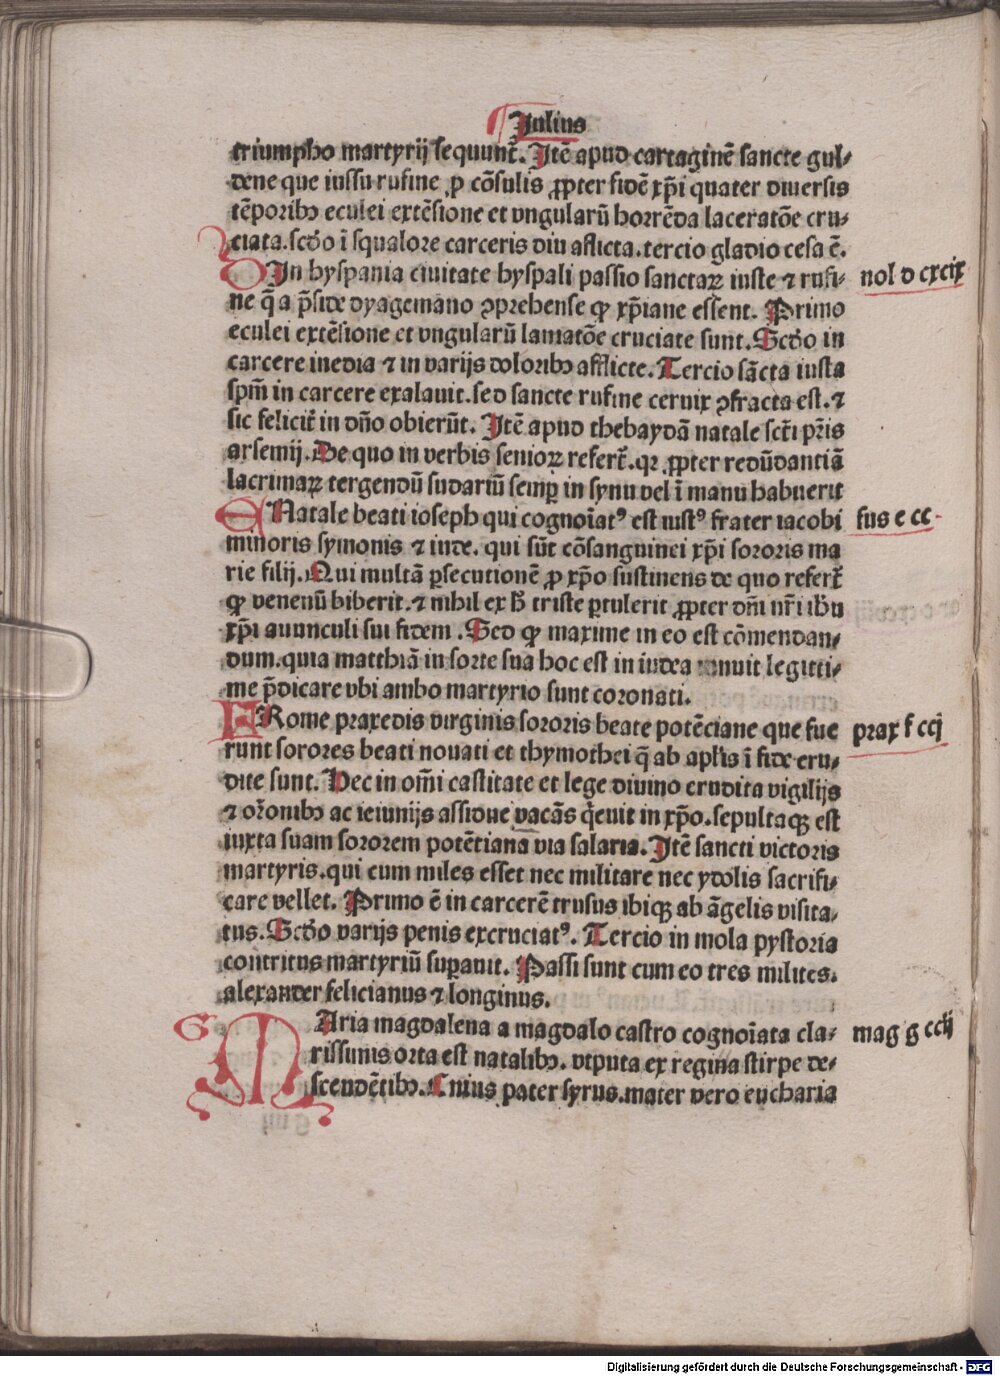 Julius
triumpho martyrij sequunt̃. Itẽ apud cartaginẽ sancte gul⸗
dene que iussu rufine ꝓ cõsulis ꝓpter fidẽ xp̃i quater diuersis
tẽporibꝫ eculei extẽsione et vngularũ horrẽda laceratõe cru⸗
ciata. scd̃o ĩ squalore carceris diu aflicta. tercio gladio cesa ẽ.
D In hyspania ciuitate hyspali passio sanctaꝝ iuste ⁊ rufi⸗ nol d cxcix
ne q̃ a p̃side dyagemano ꝯprehense ꝙ xp̃iane essent. Primo
eculei extẽsione et vngularũ lamatõe cruciate sunt. Scd̃o in
carcere inedia ⁊ in varijs doloribꝫ afflicte. Tercio sãcta iusta
spm̃ in carcere exalauit. sed sancte rufine ceruix ꝯfracta est. ⁊
sic felicit̃ in dño obierũt. Itẽ apud thebaydã natale sct̃i pr̃is
arsemij. De quo in verbis senioꝝ refert̃. qꝛ ꝓpter redũdantiã
lacrimaꝝ tergendũ sudariũ semꝑ in synu vel ĩ manu habuerit
E Natale beati ioseph qui cognoĩatꝰ est iustꝰ frater iacobi fus e cc
minoris symonis ⁊ iude. qui sũt cõsanguinei xp̃i sororis ma
rie filij. Qui multã ꝑsecutionẽ ꝓ xp̃o sustinens de quo refert̃
ꝙ venenũ biberit. ⁊ nihil ex h̃ triste ꝑtulerit ꝓpter dñi nr̃i ih̃u
xp̃i auunculi sui fidem. Sed ꝙ maxime in eo est cõmendan⸗
dum. quia matthiã in sorte sua hoc est in iudea legitti⸗
me p̃dicare vbi ambo martyrio sunt coronati.
F Rome praxedis virginis sororis beate potẽciane que fue prax f ccj
runt sorores beati nouati et thymothei q̃ ab apl̃is ĩ fide eru⸗
dite sunt. Hec in om̃i castitate et lege diuino erudita vigilijs
⁊ or̃onibꝫ ac ieiunijs assidue vacãs q̃euit in xp̃o. sepultaqꝫ est
iuxta suam sororem potẽtiana via salaria. Itẽ sancti victoris
martyris. qui cum miles esset nec militare nec ydolis sacrifi⸗
care vellet. Primo ẽ in carcerẽ trusus ibiqꝫ ab ãgelis visita⸗
tus. Scd̃o varijs penis excruciatꝰ. Tercio in mola pystoria
contritus martyriũ suꝑauit. Passi sunt cum eo tres milites.
alexander felicianus ⁊ longinus.
G MAria magdalena a magdalo castro cognoĩata cla⸗ mag g ccij
rissimis orta est natalibꝫ. vtputa ex regina stirpe de⸗
scendẽtibꝫ. Cuius pater syrus. mater vero eucharia
Digitalisierung gefördert durch die Deutsche Forschungsgemeinschaft - DFG